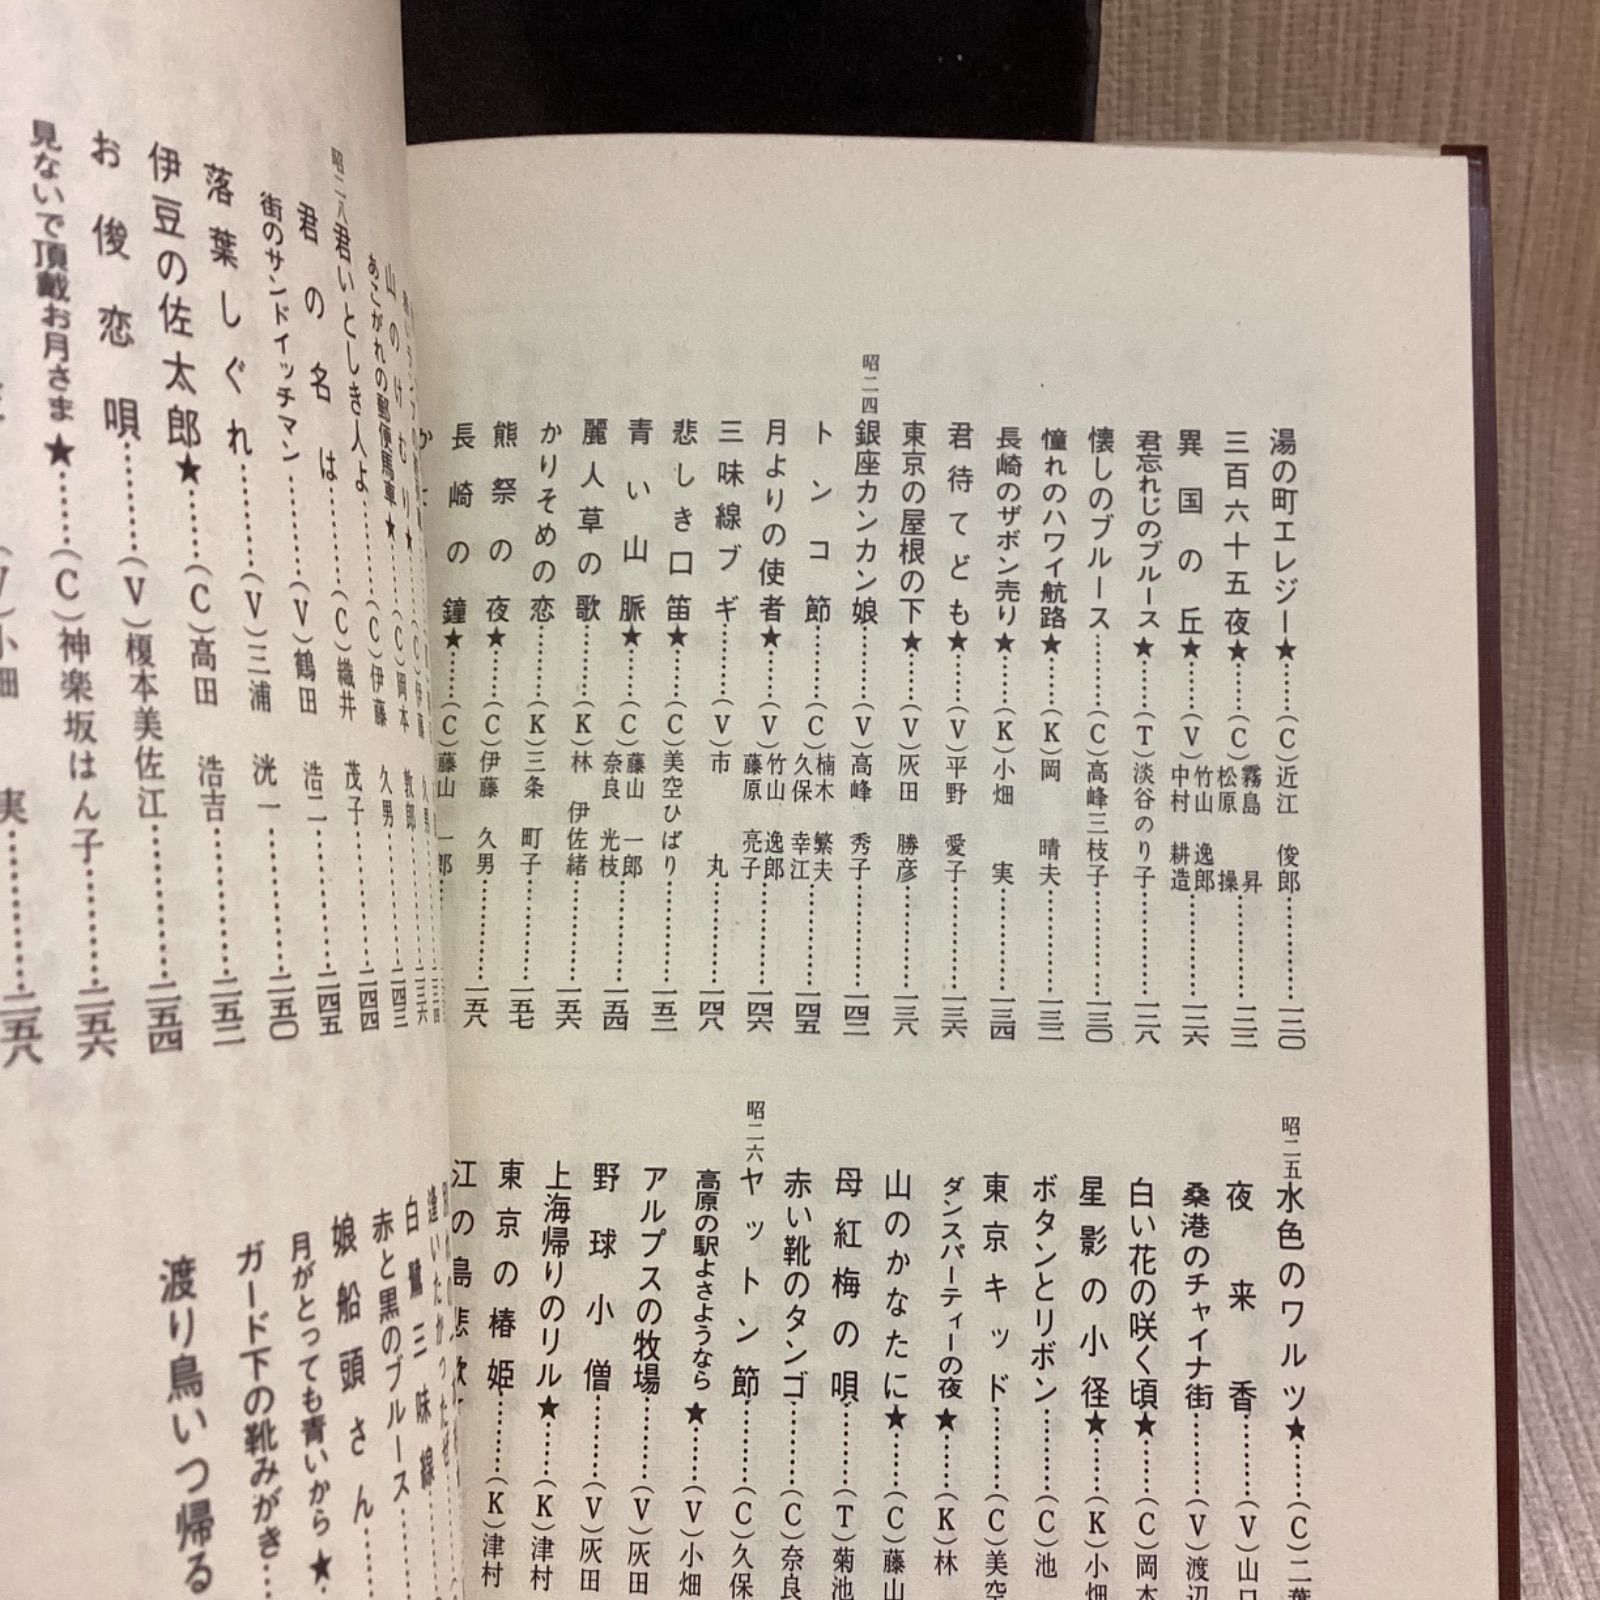 湯の町エレジー★……(C)近江 俊郎…………一二〇
三百六十五夜★……(C)霧島 昇 松原 操…………一二二
異国の丘★……(V)竹山 逸郎 中村 耕造…………一二六
君忘れじのブルース★……(T)淡谷のり子…………一二八
懐しのブルース……(C)高峰三枝子…………一三〇
憧れのハワイ航路★……(K)岡 晴夫…………一三二
長崎のザボン売り★……(K)小畑 実…………一三四
君待てども★……(V)平野 愛子…………一三六
東京の屋根の下★……(V)灰田 勝彦…………一三八
昭二四
銀座カンカン娘……(V)高峰 秀子…………一四二
トンコ節……(C)楠木 繁夫 久保 幸江…………一四五
月よりの使者★……(V)竹山 逸郎 藤原 亮子…………一四六
三味線ブギ……(V)市 丸…………一四八
悲しき口笛★……(C)美空ひばり…………一五二
青い山脈★……(C)藤山 一郎 奈良 光枝…………一五四
麗人草の歌……(K)林 伊佐緒…………一五六
かりそめの恋……(K)三条 町子…………一五七
熊祭の夜★……(C)伊藤 久男…………一五八
長崎の鐘★……(C)藤山 一郎…………
昭二五
水色のワルツ★……(C)二葉
夜来香……(V)山口
桑港のチャイナ街……(V)渡辺
白い花の咲く頃★……(C)岡本
星影の小径★……(K)小畑
ボタンとリボン……(C)池
東京キッド……(C)美空
ダンスパーティーの夜★……(K)林
山のかなたに★……(C)藤山
母紅梅の唄……(T)菊池
赤い靴のタンゴ……(C)奈良
昭二六
ヤットン節……(C)久保
高原の駅よさようなら★……(V)小畑
アルプスの牧場……(V)灰田
野球小僧……(V)灰田
上海帰りのリル★……(K)津村
東京の椿姫……(K)津村
江の島悲歌
山のけむり★……(C)伊藤 久男
あこがれの郵便馬車★……(C)岡本 敦郎……二三六
昭二八
君いとしき人よ……(C)伊藤 久男……二四三
君の名は……(C)織井 茂子……二四四
街のサンドイッチマン……(V)鶴田 浩二……二四五
落葉しぐれ……(V)三浦 洸一……二五〇
伊豆の佐太郎★……(C)高田 浩吉……二五二
お俊恋唄……(V)榎本美佐江……二五四
見ないで頂戴お月さま★……(C)神楽坂はん子……二五六
(V)小畑 実……二五八
逢いたかったぜ
白鷺三味線
赤と黒のブルース
娘船頭さん
月がとっても青いから★
ガード下の靴みがき
渡り鳥いつ帰る